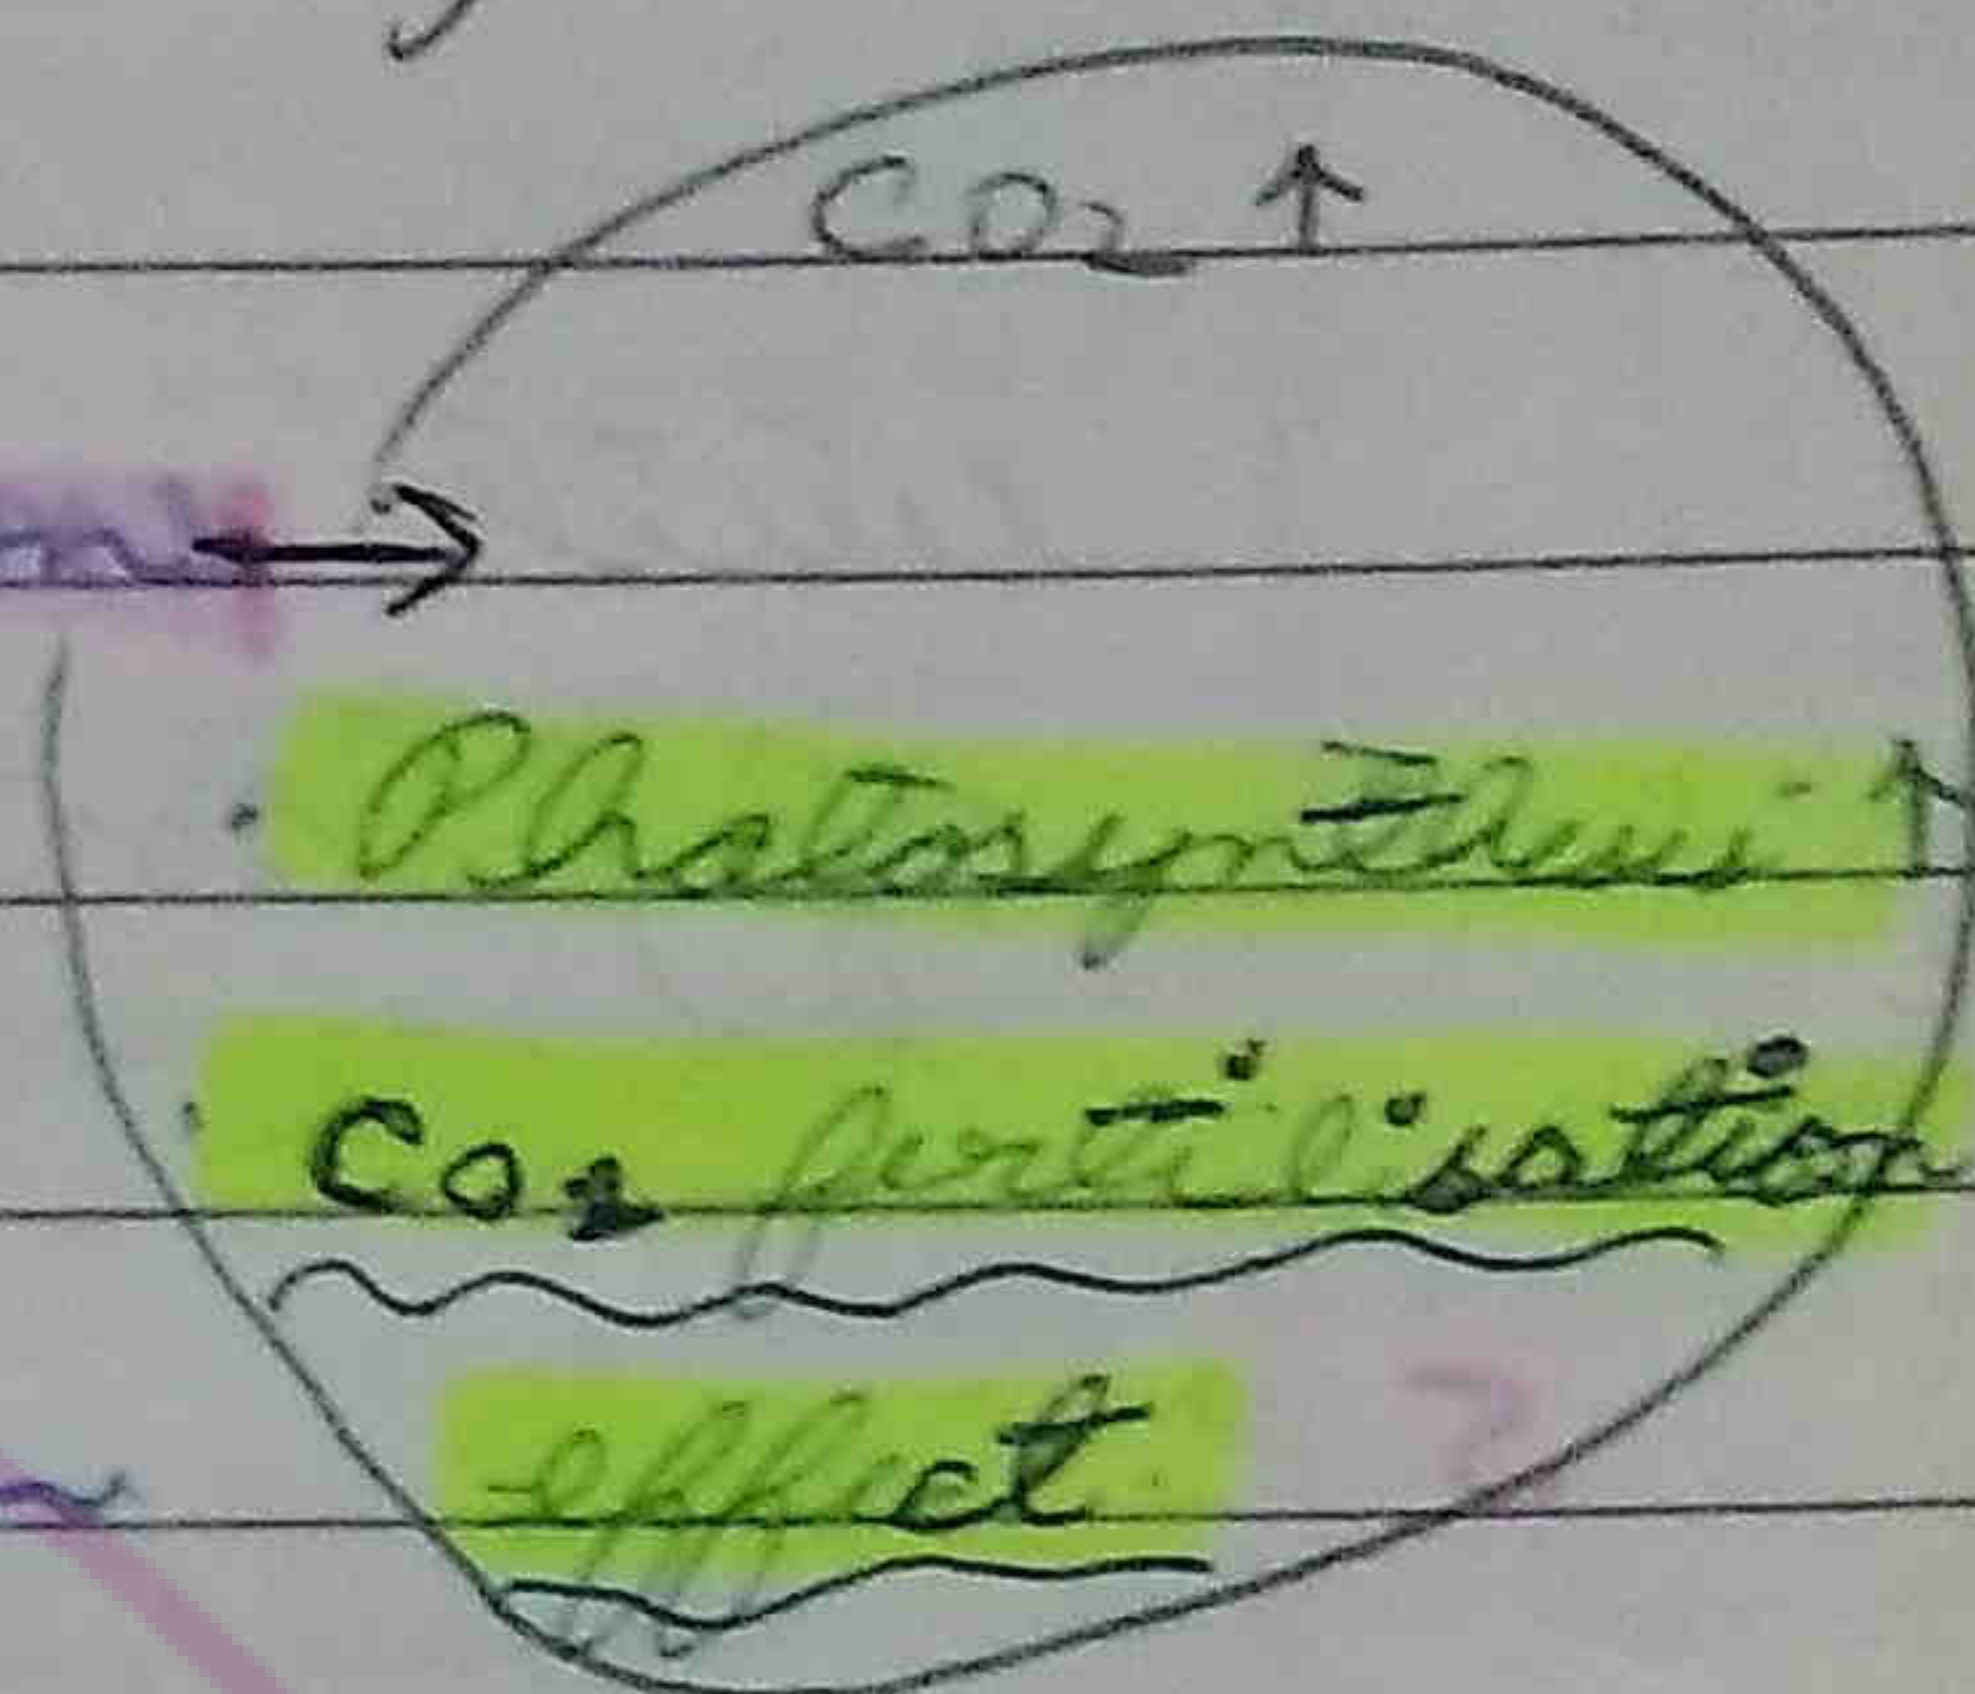 CO₂ ↑
→
• Photosynthesis ↑
• CO₂ fertilisation
effect